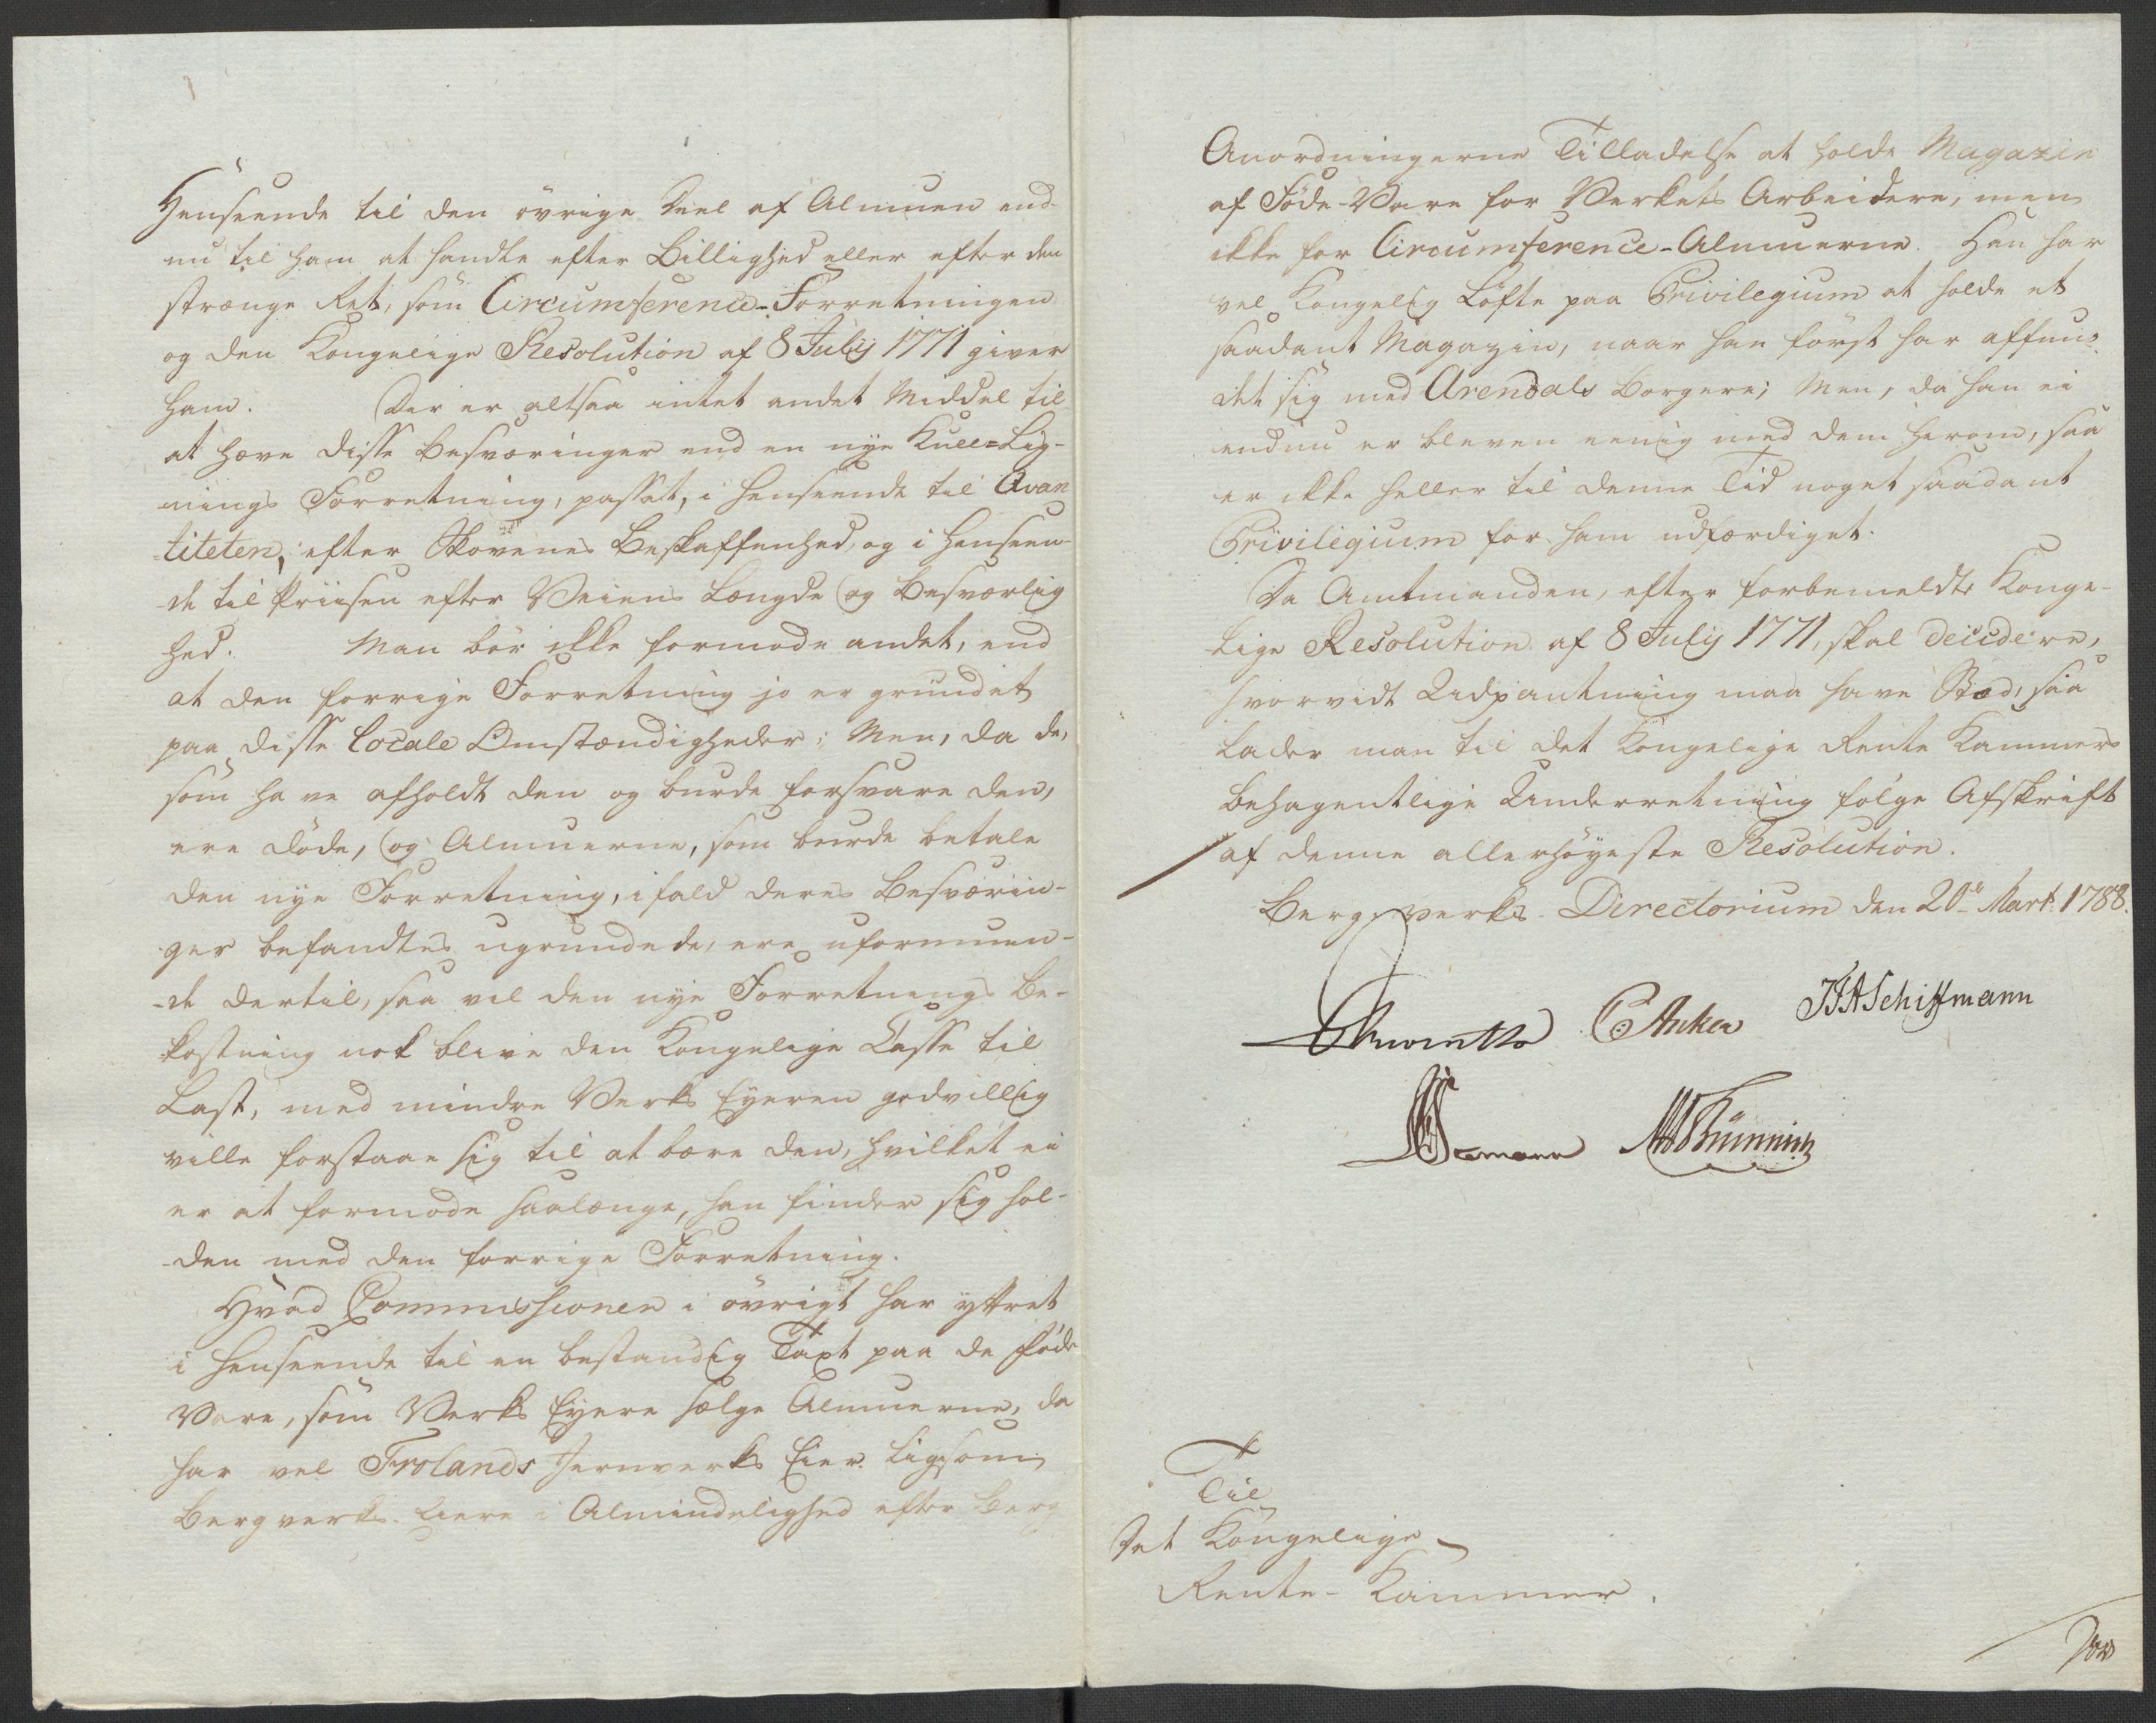 Henseende til den övrige Deel af Almuen end-
nu til ham at handle efter Billighed eller efter den
strænge Ret, som Circumference-Forretningen
og den Kongelige Resolution af 8 Julij 1771 giver
ham. Der er altsaa intet andet Middel til
at hæve disse Besværinger end en nye Kull=Lig-
nings Forretning, passet, i Henseende til Qvan
titeten, efter Skovenes Beskaffenhed, og i Henseen-
de til Priisen efter Veiens Længde og Besværlig
hed. Man bör ikke formode andet, end
at den forrige Forretning jo er grundet
paa disse locale Omstændigheder; Men, da de,
som have afholdt den og burde forsvare den,
ere döde, og Almuerne, som burde betale
den nye Forretning, ifald deres Besværin-
ger befandtes ugrundede, ere uformuen-
de dertil, saa vil den nye Forretnings Be-
kostning nok blive den Kongelige Casse til
Last, med mindre Verks Eyeren godvillig
ville forstaae sig til at bære den, hvilket ei
er at formode saalænge, han finder sig hol-
den med den forrige Forretning.
Hvad Commissionen i övrigt har yttret
i Henseende til en bestandig Taxt paa de Föde
Vare, som Verks Eyere sælge Almuerne, da
har vel Frolands Jernverks Eier ligesom
Bergverks Eiere i Almindelighed efter Berg
Anordningerne Tilladelse at holde Magazin
af Föde-Vare for Verkets Arbeidere, men
ikke for Circumference-Almuerne. Han har
vel Kongelig Löfte paa Privilegium at holde et
saadant Magazin, naar han först har affun-
det sig med Arendals Borgere; Men, da han ei
endnu er bleven eenig med dem herom, saa
er ikke heller til denne Tid noget saadant
Privilegium for ham udfærdiget.
Da Amtmanden, efter forbemeldte Konge-
lige Resolution af 8 Julij 1771, skal decidere,
hvorvidt Udpantning maa have Sted, saa
lader man til det Kongelige Rente Kammers
behagentlige Underretning fölge Afskrift
af denne allerhöyeste Resolution.
Bergverks-Directorium den 20de Mart: 1788.
C Anker JFASchiffmann
Til
Det Kongelige
Rente-Kammer.